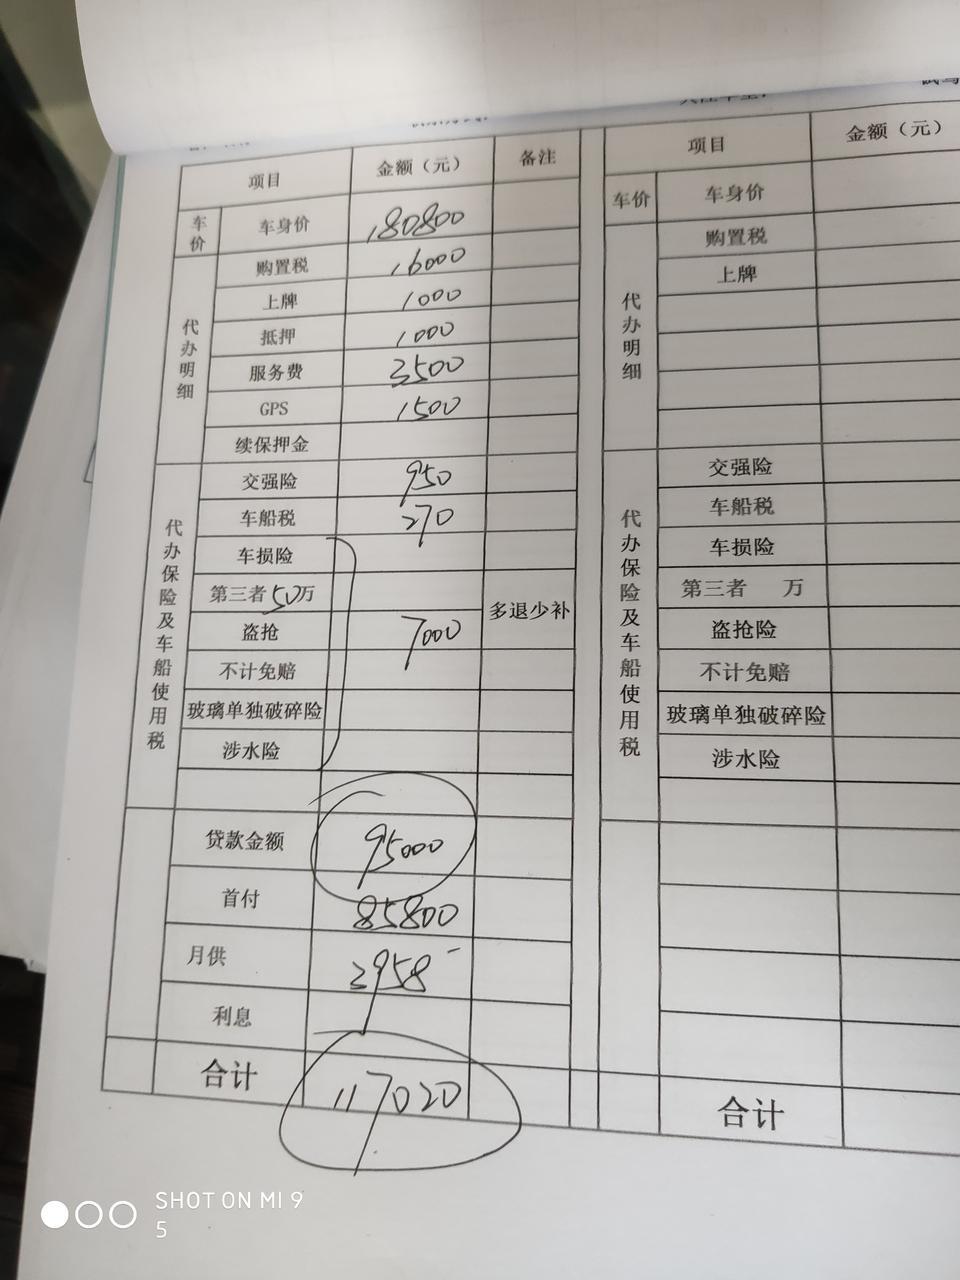 项目 金额（元） 备注
车价 车身价 180800
代办明细 购置税 16000
上牌 1000
抵押 1000
服务费 3500
GPS 1500
续保押金
代办保险及车船使用税 交强险 950
车船税 270
车损险
第三者50万 多退少补
盗抢 7000
不计免赔
玻璃单独破碎险
涉水险
贷款金额 95000
首付 85800
月供 2958
利息
合计 117020
项目 金额（元）
车价 车身价
代办明细 购置税
上牌
代办保险及车船使用税 交强险
车船税
车损险
第三者 万
盗抢险
不计免赔
玻璃单独破碎险
涉水险
合计
SHOT ON MI 9
5